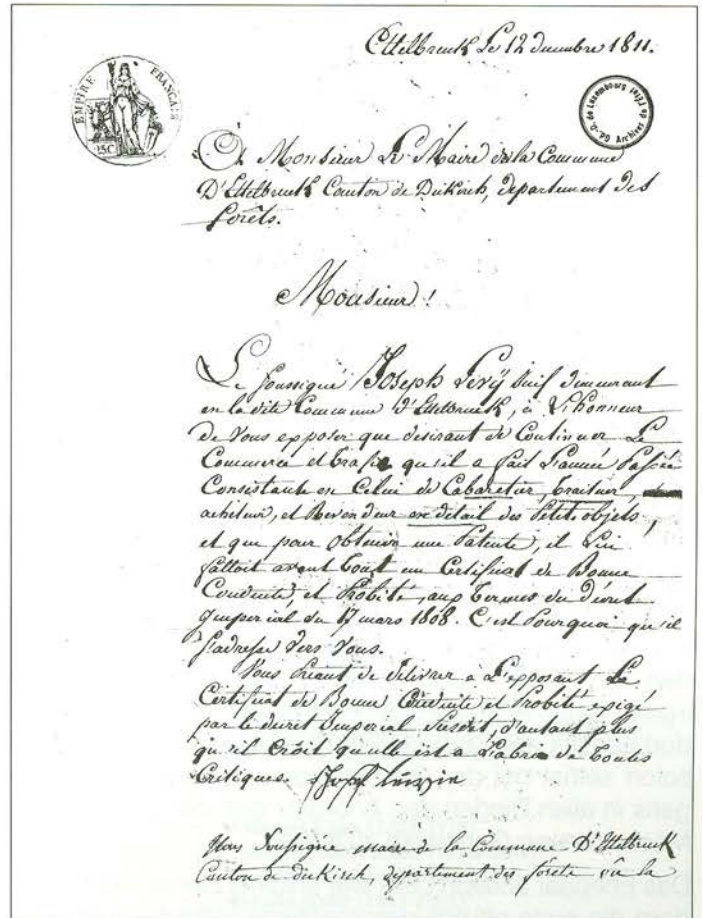 Ettelbruck Le 12 decembre 1811.
EMPIRE FRANÇAIS
25C
G.-D. de Luxembourg Archives de l'Etat
A Monsieur Le Maire de la Commune
D'Ettelbruck Canton de Diekirch, departement des
forêts.
Monsieur !
Le soussigné Joseph Levÿ Juif demeurant
en la dite Commune d'Ettelbruck, à L'honneur
de Vous exposer que desirant de Continuer Le
Commerce et trafic qu'il a fait L'année Passée
Consistante en Celui de Cabaretier, traiteur,
achteur, et Revendeur en détail des Petits objets,
et que pour obtenir une Patente, il Lui
falloit avant tout un Certificat de Bonne
Conduite, et Probité, aux termes du Décret
Imperial du 17 mars 1808. C'est Pourquoi qu'il
s'adresse Vers Vous.
Vous Priant de délivrer à L'exposant Le
Certificat de Bonne Conduite et Probité exigé
par le decret Imperial Susdit, d'autant plus
qu'il Croit qu'elle est a L'abri de toutes
Critiques.
Nous Soussigné maire de la Commune D'Ettelbruck
Canton de diekirch, departement des forêts vû la